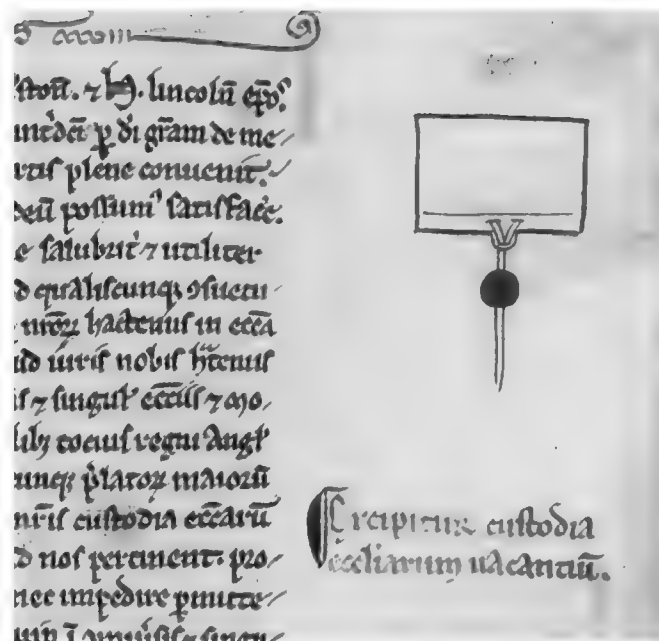 cccciii
ston̄. ⁊ h. lincoln̄ ep̄os.
p̱ di gr̄am de me/
rtis plene conuenit.
deū possum᷒ satisfac̄e.
e salubrit̄ ⁊ utiliter
d qualiscunqꝫ ꝯsuetu/
nr̄oꝝ hactenus in ecc̄a
id iuris nobis hc̄tenus
is ⁊ singul̄ ecc̄iis ⁊ mo/
libꝫ tocius regni Angl̄
cunqꝫ p̄latoꝝ maiorū
nr̄is custodia ecc̄arū
d nos pertinent. pro/
nec impedire p̱mitte/
Excipitur custodia
eccliarum uacantiū.